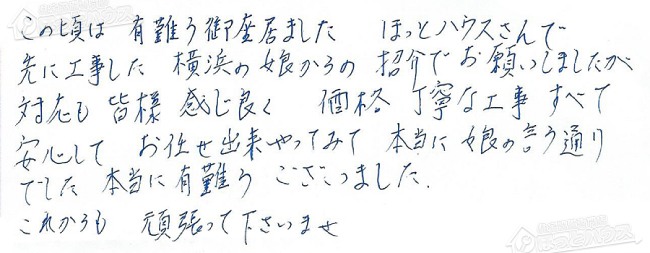 この頃は 有難う御座居ました ほっとハウスさんで
先に工事した 横浜の娘からの 紹介でお願いしましたが
対応も 皆様 感じ良く 価格 丁寧な工事 すべて
安心して お任せ出来やってみて 本当に娘の言う通り
でした 本当に有難う ございました.
これからも 頑張って下さいませ